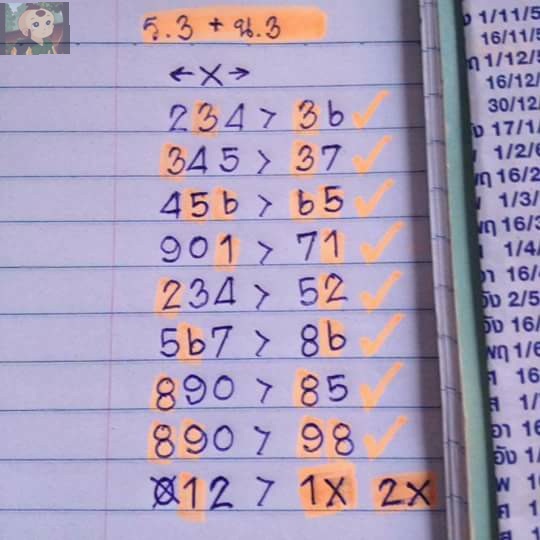 5.3 + น.3
←X→
234 > 36 ✓
345 > 37 ✓
456 > 65 ✓
901 > 71 ✓
234 > 52 ✓
567 > 86 ✓
890 > 85 ✓
890 > 98 ✓
012 > 1X 2X
1/11/5
16/11/5
1/12/5
16/12/
30/12/
17/1/
1/2/6
พฤ 16/2
1/3/
พฤ 16/3
1/4/
อา 16/4
อัง 2/5
อัง 16/
พฤ 1/6
ศ 16
ส 1/
อา 16
อัง 1/
พ 1
ศ 1
ส 1